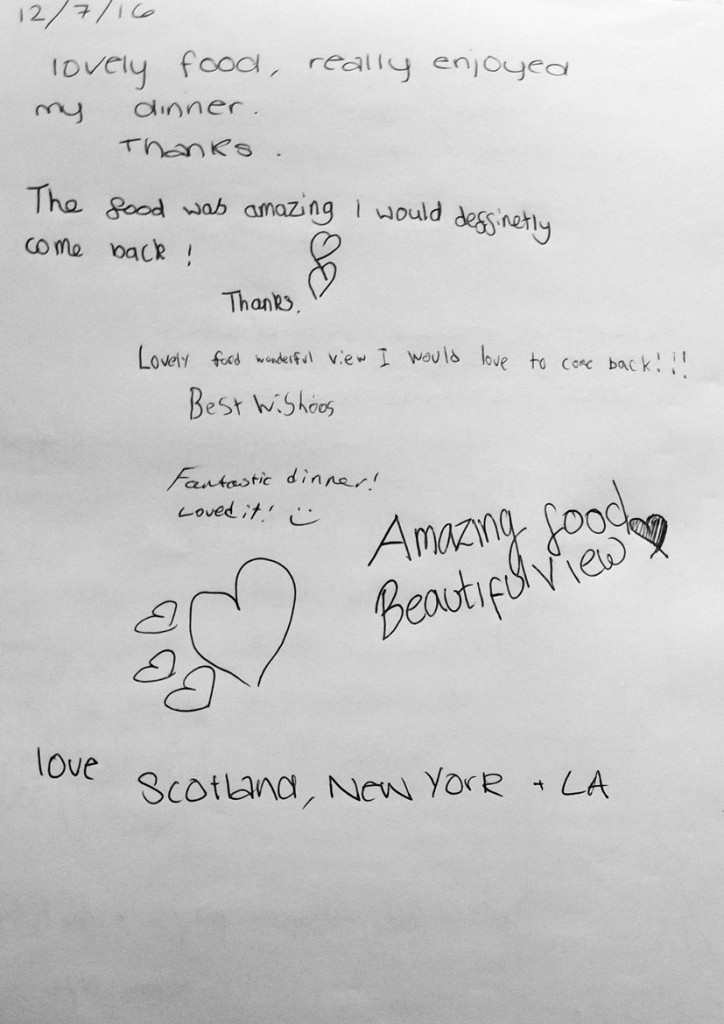 12/7/16
lovely food, really enjoyed
my dinner.
Thanks.
The food was amazing I would deffinetly
come back!
Thanks.
Lovely food wonderful view I would love to come back!!!!
Best Wishoos
Fantastic dinner!
Loved it! :)
Amazing food
Beautiful view
love
Scotland, New York + LA